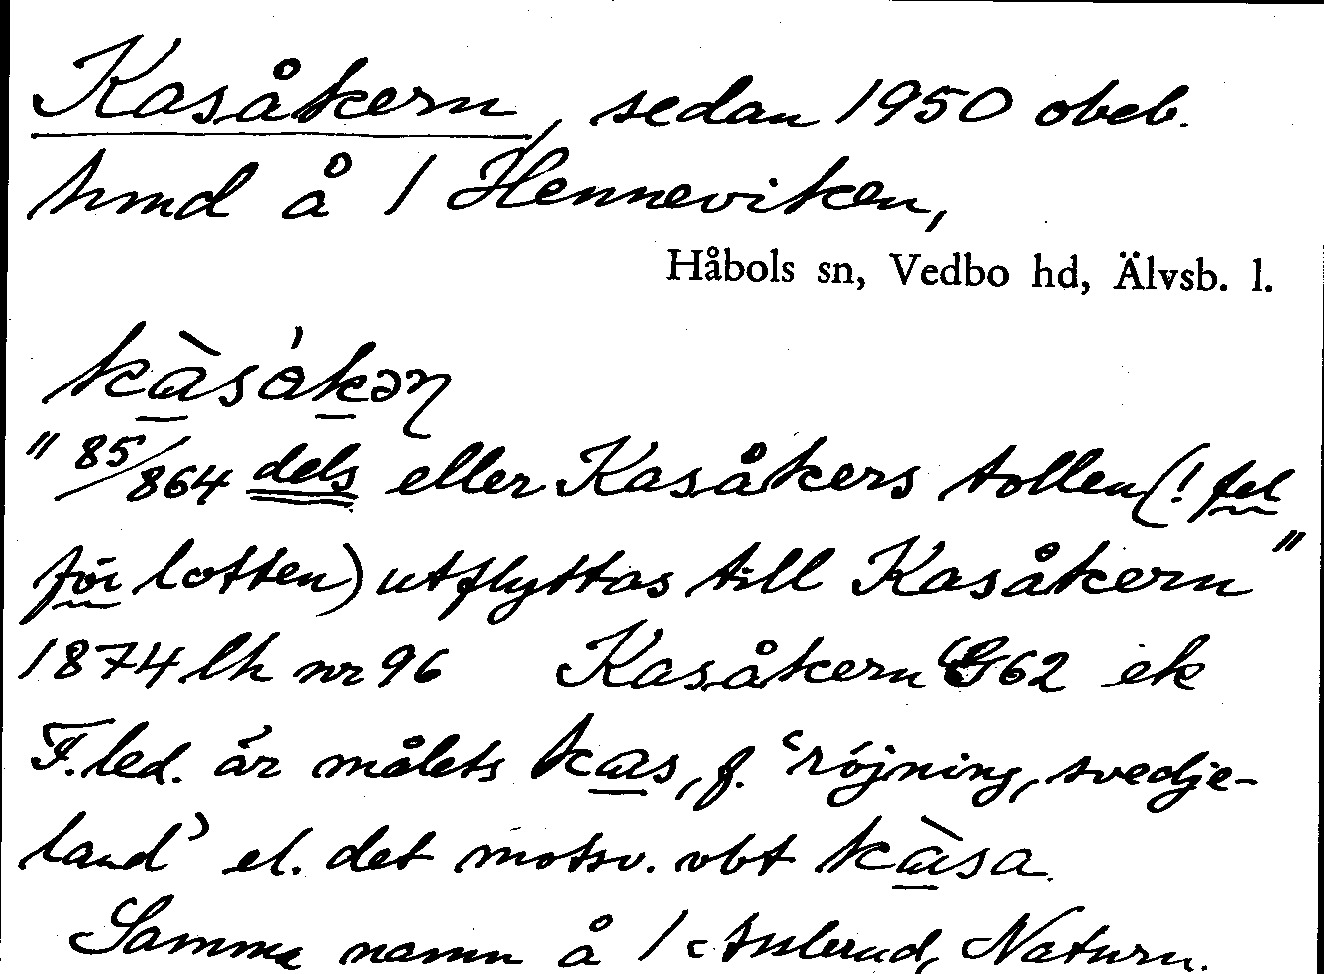 Kasåkern, sedan 1950 obeb.
hmd å 1 Henneviken,
Håbols sn, Vedbo hd, Älvsb. l.
kàsåkəɳ
" 85/864 dels eller Kasåkers tollen (! fel
för lotten) utflyttas till Kasåkern "
1874 lh nr 96 Kasåkern G62 ek
F.led. är målets kas, f. 'röjning, svedje-
land' el. det motsv. vbt kàsa.
Samma namn å 1 Naturn.